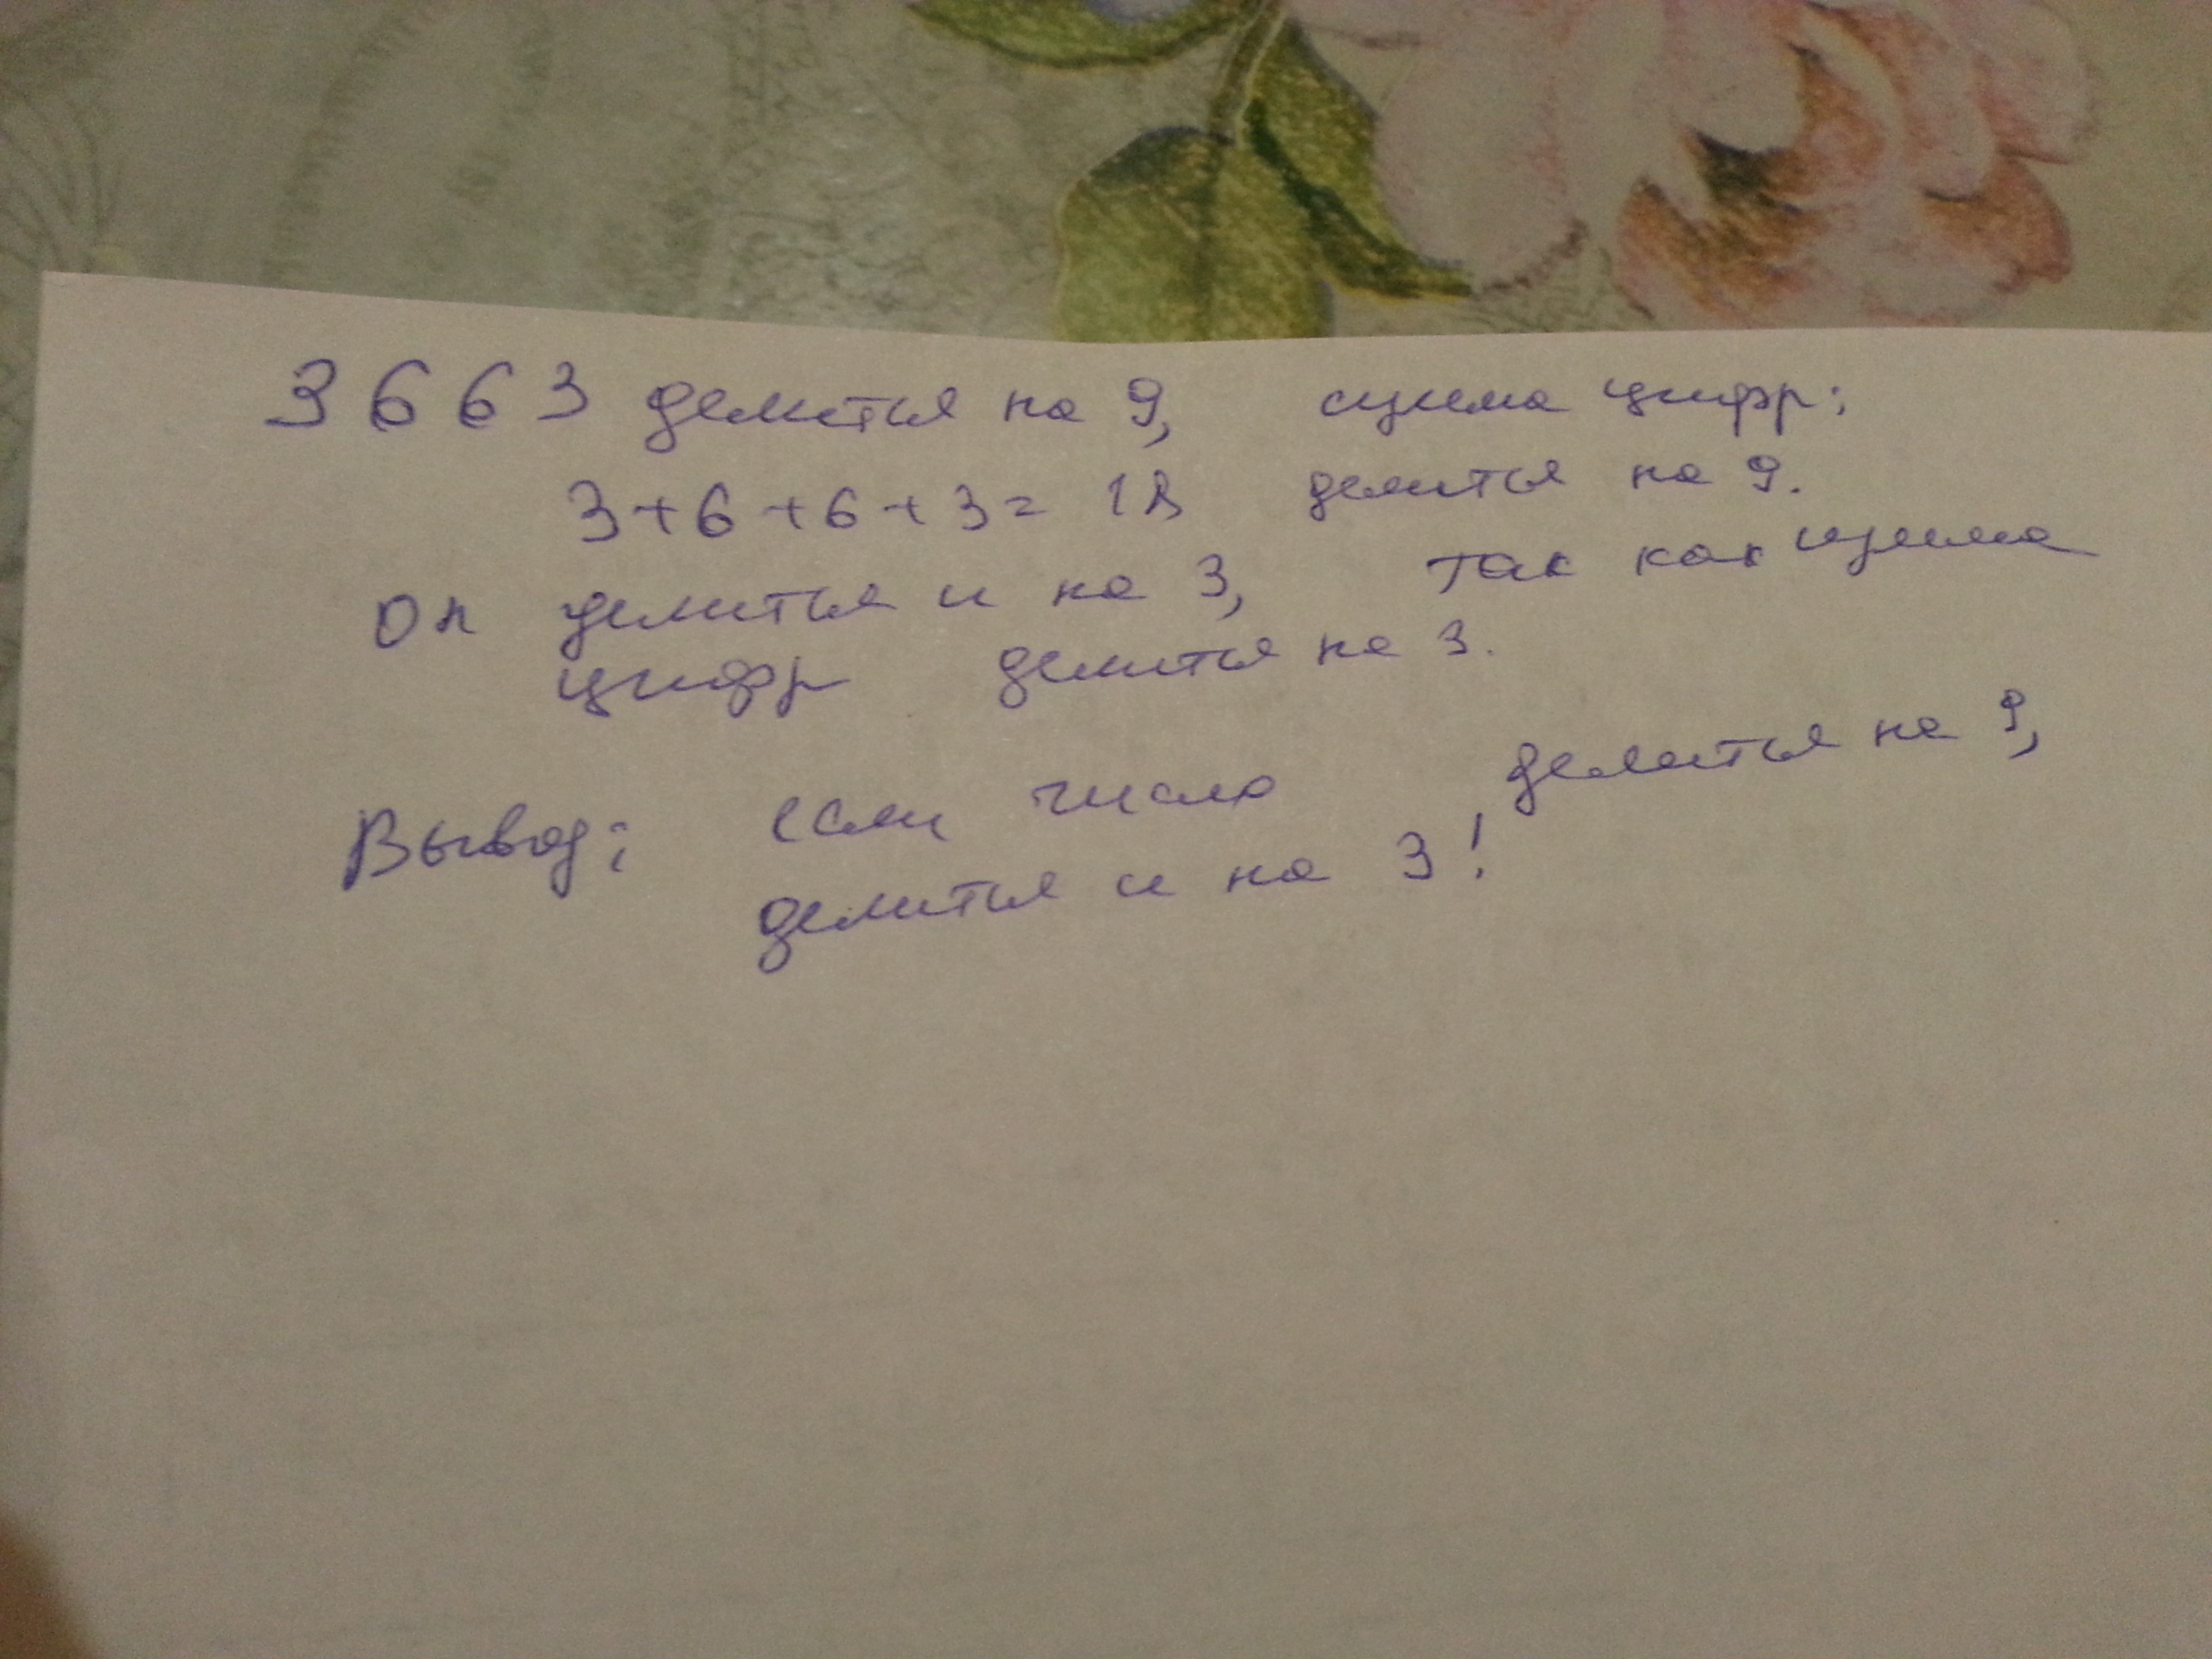 3663 делится на 9, сумма цифр:
3+6+6+3= 18 делится на 9.
Он делится и на 3, так как сумма
цифр делится на 3.
Вывод: если число делится на 9,
делится и на 3!